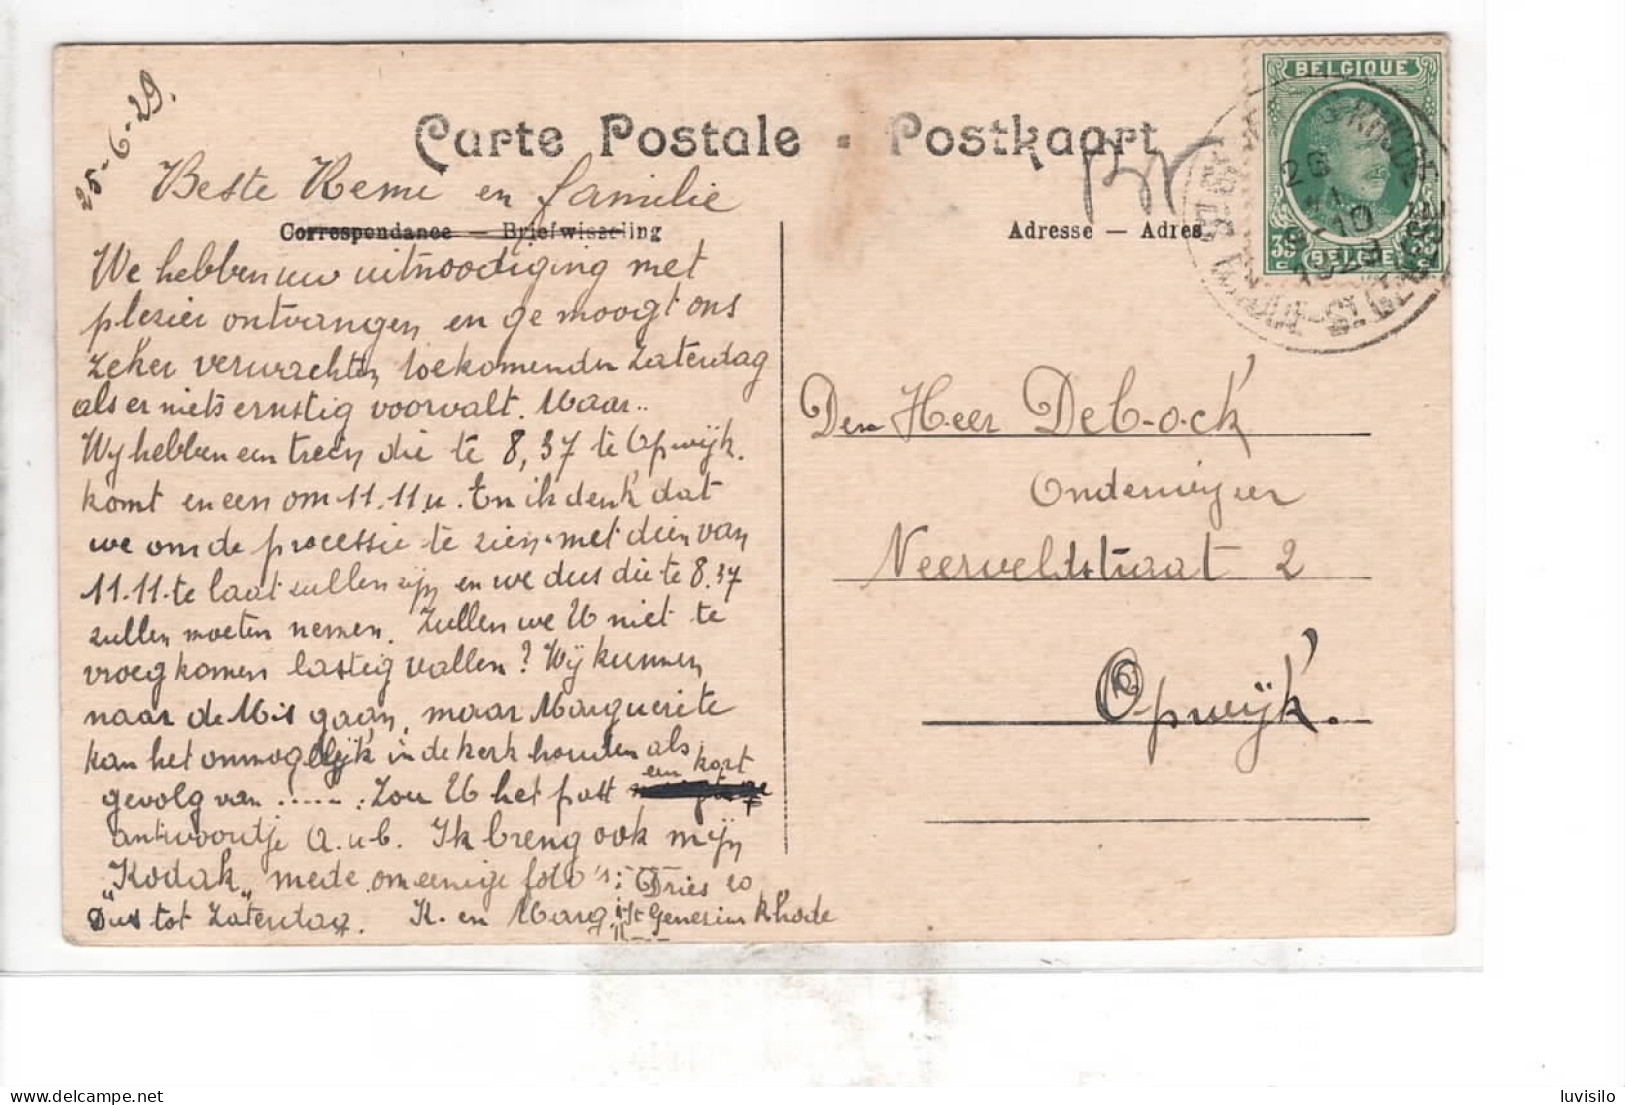 25-6-29.
Carte Postale - Postkaart
Beste Remi en familie
Correspondance — Briefwisseling
Adresse — Adres
We hebben uw uitnoodiging met
plezier ontvangen en ge moogt ons
zeker verwachten toekomenden Zaterdag
als er niets ernstig voorvalt. Maar..
Wij hebben een trein die te 8,37 te Opwijk.
komt en een om 11.11.u. En ik denk dat
we om de processie te zien met dien van
11.11. te laat zullen zijn en we dus die te 8.37
zullen moeten nemen. Zullen we U niet te
vroeg komen lastig vallen? Wij kunnen
naar de Mis gaan, maar Marguerite
kan het onmogelijk in de kerk houden als
gevolg van ...... . Zou U het past een kort
antwoordje a.u.b. Ik breng ook mijn
"Kodak" mede om eenige foto's.
Dus tot Zaterdag. K. en Marg.
Dries 20
St Genesius Rhode
BELGIQUE
35 c BELGIË 35 c
26
VI
9-10
1929
Den Heer DeCock
Onderwijzer
Neerveldstraat 2
Opwijk.
luvisilo